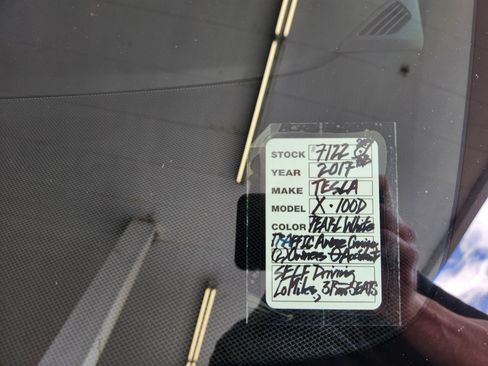 STOCK 7122
YEAR 2017
MAKE TESLA
MODEL X·100D
COLOR PEARL White
TRAFFIC Aware Cruise
(2) Owners 0 Accident
SELF Driving
Lo Miles, 3 Row SEATS